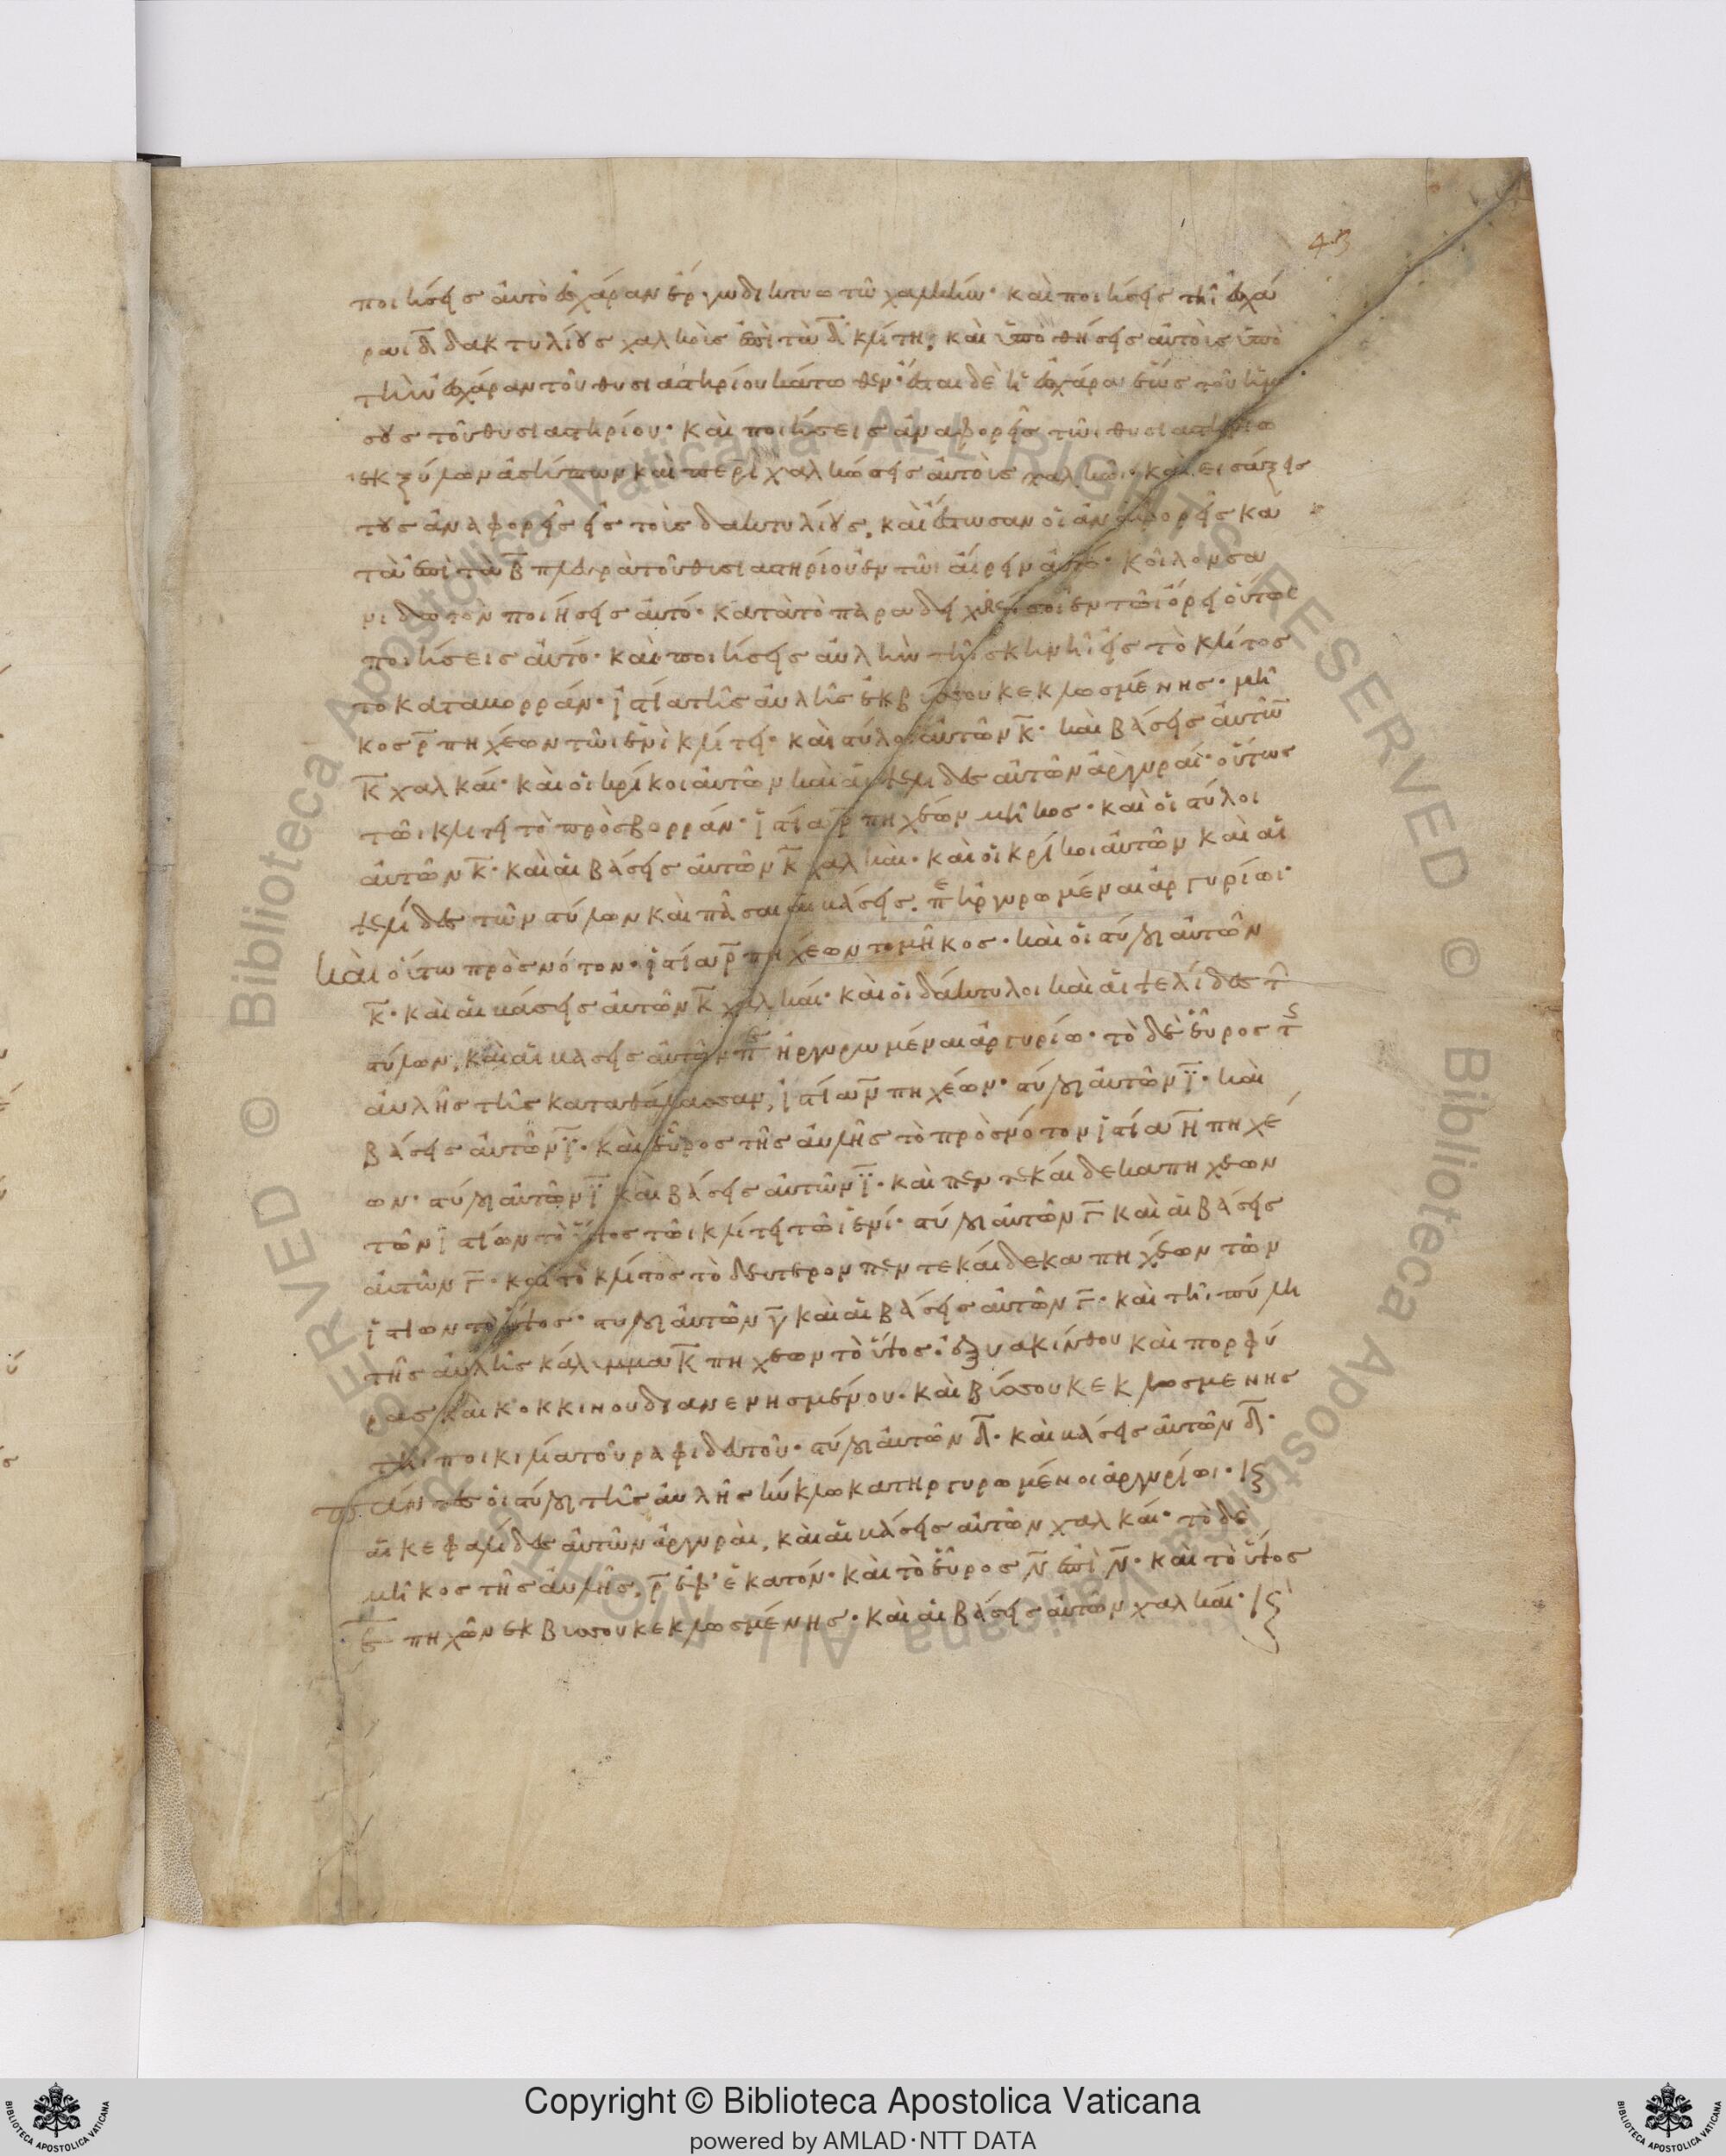 43
ποιήσεις ἀυτῶ ἐσχάραν ἔργωι δικτυω τῶ χαλκῶν· καὶ ποιήσεις τῆι ἐσχά
ραι δ̅ δακτυλίους χαλκοὺς ἐπὶ τὰ δ̅ κλίτη, καὶ ὑποθήσεις αὐτοὺς ὑπὸ
τὴν ἐσχάραν τοῦ θυσιαστηρίου κάτωθεν· ἔσται δὲ ἡ ἐσχάρα ἕως τοῦ ἡμί
σους τοῦ θυσιαστηρίου· καὶ ποιήσεις ἀναφορεῖς τῶι θυσιαστηρίω
ἐκ ξύλων ἀσήπτων καὶ περιχαλκώσεις ἀυτοὺς χαλκῶι· καὶ εἰσάξεις
τοὺς ἀναφορεῖς εἰς τοὺς δακτυλίους, καὶ ἔστωσαν οἱ ἀναφορεῖς κα
τὰ ἐπὶ τὰ β̅ πλευρὰ τοῦ θυσιαστηρίου ἐν τῶι αἴρειν ἀυτό· κοῖλον σα
νιδωτὸν ποιήσεις ἀυτό· κατὰ τὸ παραδειχθέν σοι ἐν τῶι ὄρει οὕτως
ποιήσεις ἀυτό· καὶ ποιήσεις ἀυλὴν τῆι σκηνῆι εἰς τὸ κλίτος
τὸ κατα βορράν· ἱστία τῆς ἀυλῆς ἐκ βύσσου κεκλωσμένης· μῆ
κος ρ̅ πηχέων τῶι ἑνὶ κλίτει· καὶ στύλοι ἀυτῶν κ̅· καὶ βάσεις ἀυτῶν
κ̅ χαλκαῖ· καὶ οἱ κρίκοι ἀυτῶν καὶ αἱ ψελίδες ἀυτῶν ἀργυραῖ· οὕτως
τῶι κλίτει τὸ πρὸς βορράν· ἱστία ρ̅ πηχέων μῆκος· καὶ οἱ στύλοι
ἀυτῶν κ̅· καὶ αἱ βάσεις ἀυτῶν κ̅ χαλκαῖ· καὶ οἱ κρίκοι ἀυτῶν καὶ αἱ
ψελίδες τῶν στύλων καὶ πᾶσαι αἱ βάσεις, περιηργυρωμέναι ἀργυρίωι·
Καὶ οὕτω πρὸς νότον· ἱστία ρ̅ πηχέων τὸ μῆκος· καὶ οἱ στύλοι ἀυτῶν
κ̅· καὶ αἱ βάσεις ἀυτῶν κ̅ χαλκαῖ· καὶ οἱ δάκτυλοι καὶ αἱ ψελίδες τῶν
στύλων, καὶ αἱ βάσεις ἀυτῶν περιηργυρωμέναι ἀργυρίω· τὸ δὲ εὖρος τῆς
ἀυλῆς τῆς κατὰ θάλασσαν, ἱστία ν̅ πηχέων· στύλοι ἀυτῶν ι̅· καὶ
βάσεις ἀυτῶν ι̅· καὶ εὖρος τῆς ἀυλῆς τὸ πρὸς νότον ἱστία ν̅ πηχέ
ων· στύλοι ἀυτῶν ι̅ καὶ βάσεις ἀυτῶν ι̅· καὶ πεντεκαίδεκα πηχεων
τῶν ἱστίων τὸ ὕψος τῶι κλίτει τῶι ἑνί· στύλοι ἀυτῶν γ̅ καὶ αἱ βάσεις
ἀυτῶν γ̅· καὶ τὸ κλίτος τὸ δευτερον πεντεκαίδεκα πηχέων τῶν
ἱστιων τὸ ὕψος· στύλοι ἀυτῶν γ̅ καὶ αἱ βάσεις ἀυτῶν γ̅· καὶ τῆι πύλη
τῆς ἀυλῆς κάλυμμα κ̅ πηχεων τὸ ὕψος· ἐξ υακίνθου καὶ πορφύ
ρας καὶ κοκκινου διανενησμένου· καὶ βύσσου κεκλωσμενης
τῆι ποικιλία τοῦ ραφιδευτοῦ· στύλοι ἀυτῶν δ̅· καὶ βάσεις ἀυτῶν δ̅·
Πάντες οἱ στύλοι τῆς ἀυλῆς κύκλω κατηργυρωμένοι ἀργυρίωι· κς
αἱ κεφαλίδες ἀυτῶν ἀργυραὶ, καὶ αἱ βάσεις ἀυτῶν χαλκαῖ· τὸ δὲ
μῆκος τῆς ἀυλῆς, ρ̅ ἐφ' ἑκατόν· καὶ τὸ εὖρος ν̅ ἐπὶ ν̅· καὶ τὸ ὕψος
ε̅ πηχῶν ἐκ βυσσου κεκλωσμένης· καὶ αἱ βάσεις ἀυτῶν χαλκαῖ· κς
Copyright © Biblioteca Apostolica Vaticana
powered by AMLAD·NTT DATA